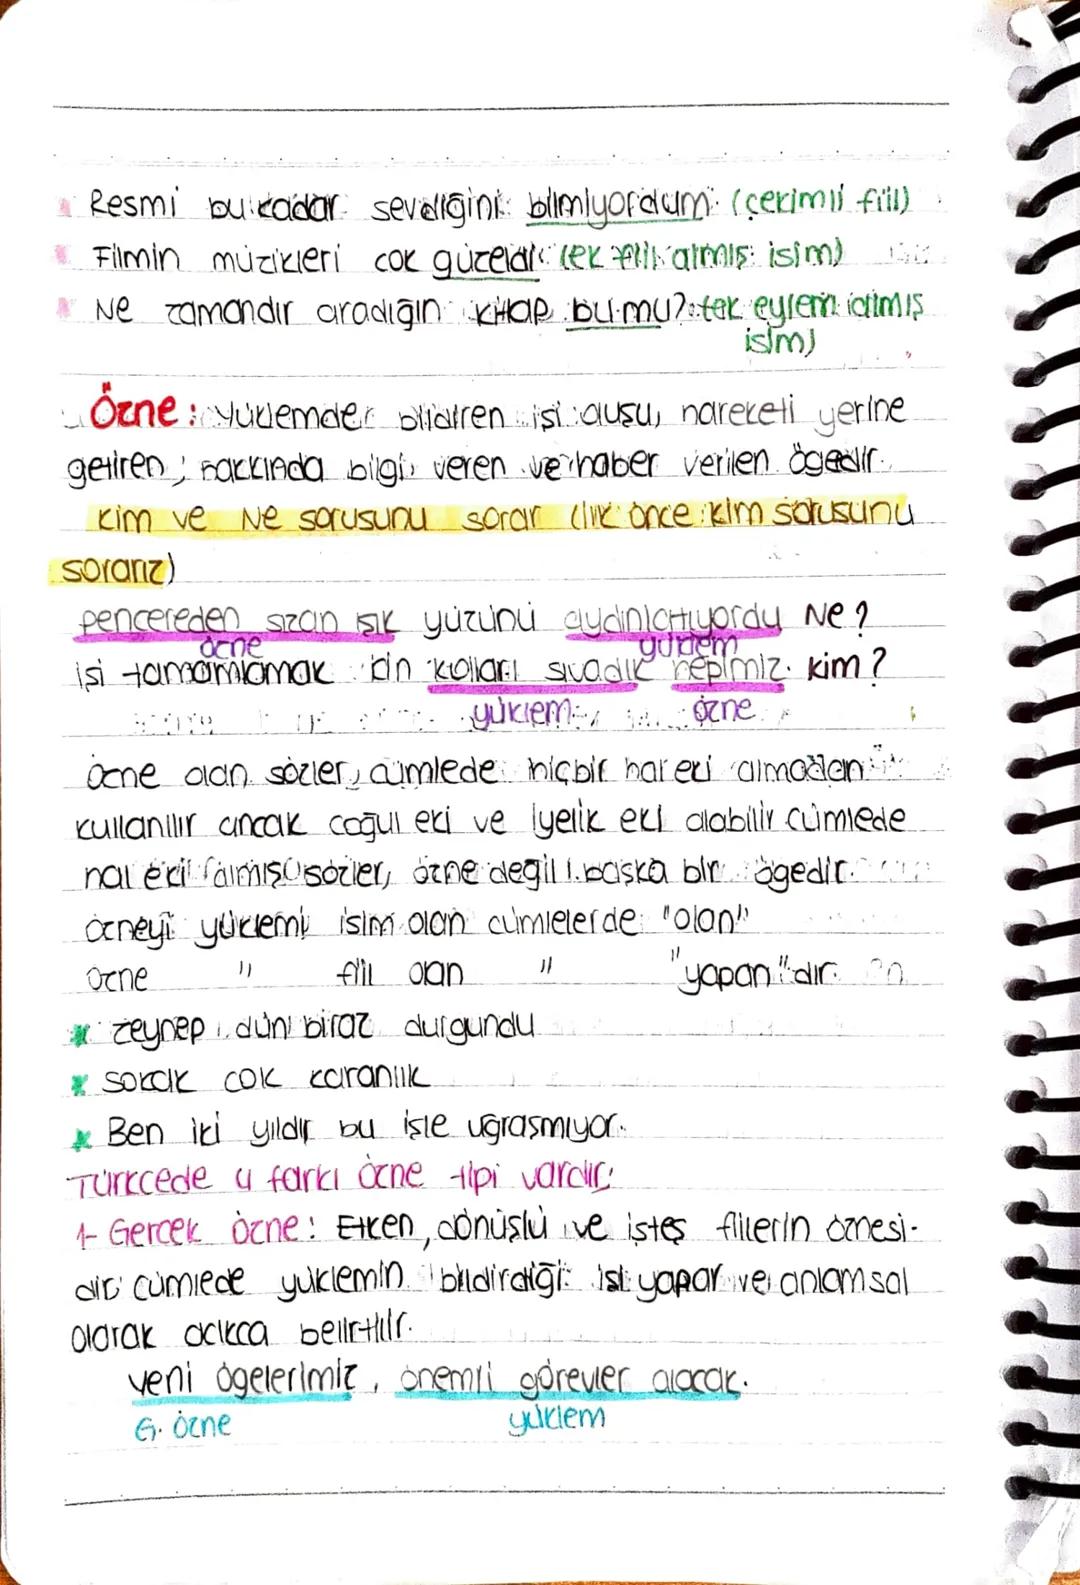 Resmi bu kadar sevdiğini bilmiyordum (çekimli fiil)
Filmin müzikleri cok güzeldi (ek fiil almış isim)
Ne zamandır aradığın kitap bu mu? (ek eylem almış
isim)
Özne: Yüklemde bildiren işi, oluşu, hareketi yerine
getiren; hakkında bilgi veren ve haber verilen ögedir.
Kim ve Ne sorusunu sorar (ilk önce kim sorusunu
sorarız)
pencereden sızan ışık yüzünü aydınlatıyordu Ne?
özne yüklem
işi tamamlamak için kolları sıvadık hepimiz. kim?
yüklem özne
özne olan sözler, cümlede hiçbir hal eki almadan
kullanılır ancak coğul eki ve iyelik eki alabilir cümlede
hal eki almış sözler, özne değil başka bir ögedir.
özneyi yüklemi isim olan cümlelerde "olan"
özne " fiil olan " "yapan"dır.
zeynep dün biraz durgundu
sokak cok karanlık
Ben iki yıldır bu işle uğraşmıyor.
Türkcede 4 farkı özne tipi vardır;
1- Gercek özne: Etken, dönüşlü ve işteş fiillerin öznesi-
dir cümlede yüklemin bildirdiği işi yapar ve anlamsal
olarak acıkca belirtilir.
yeni ögelerimiz, önemli görevler alacak.
G. özne yüklem